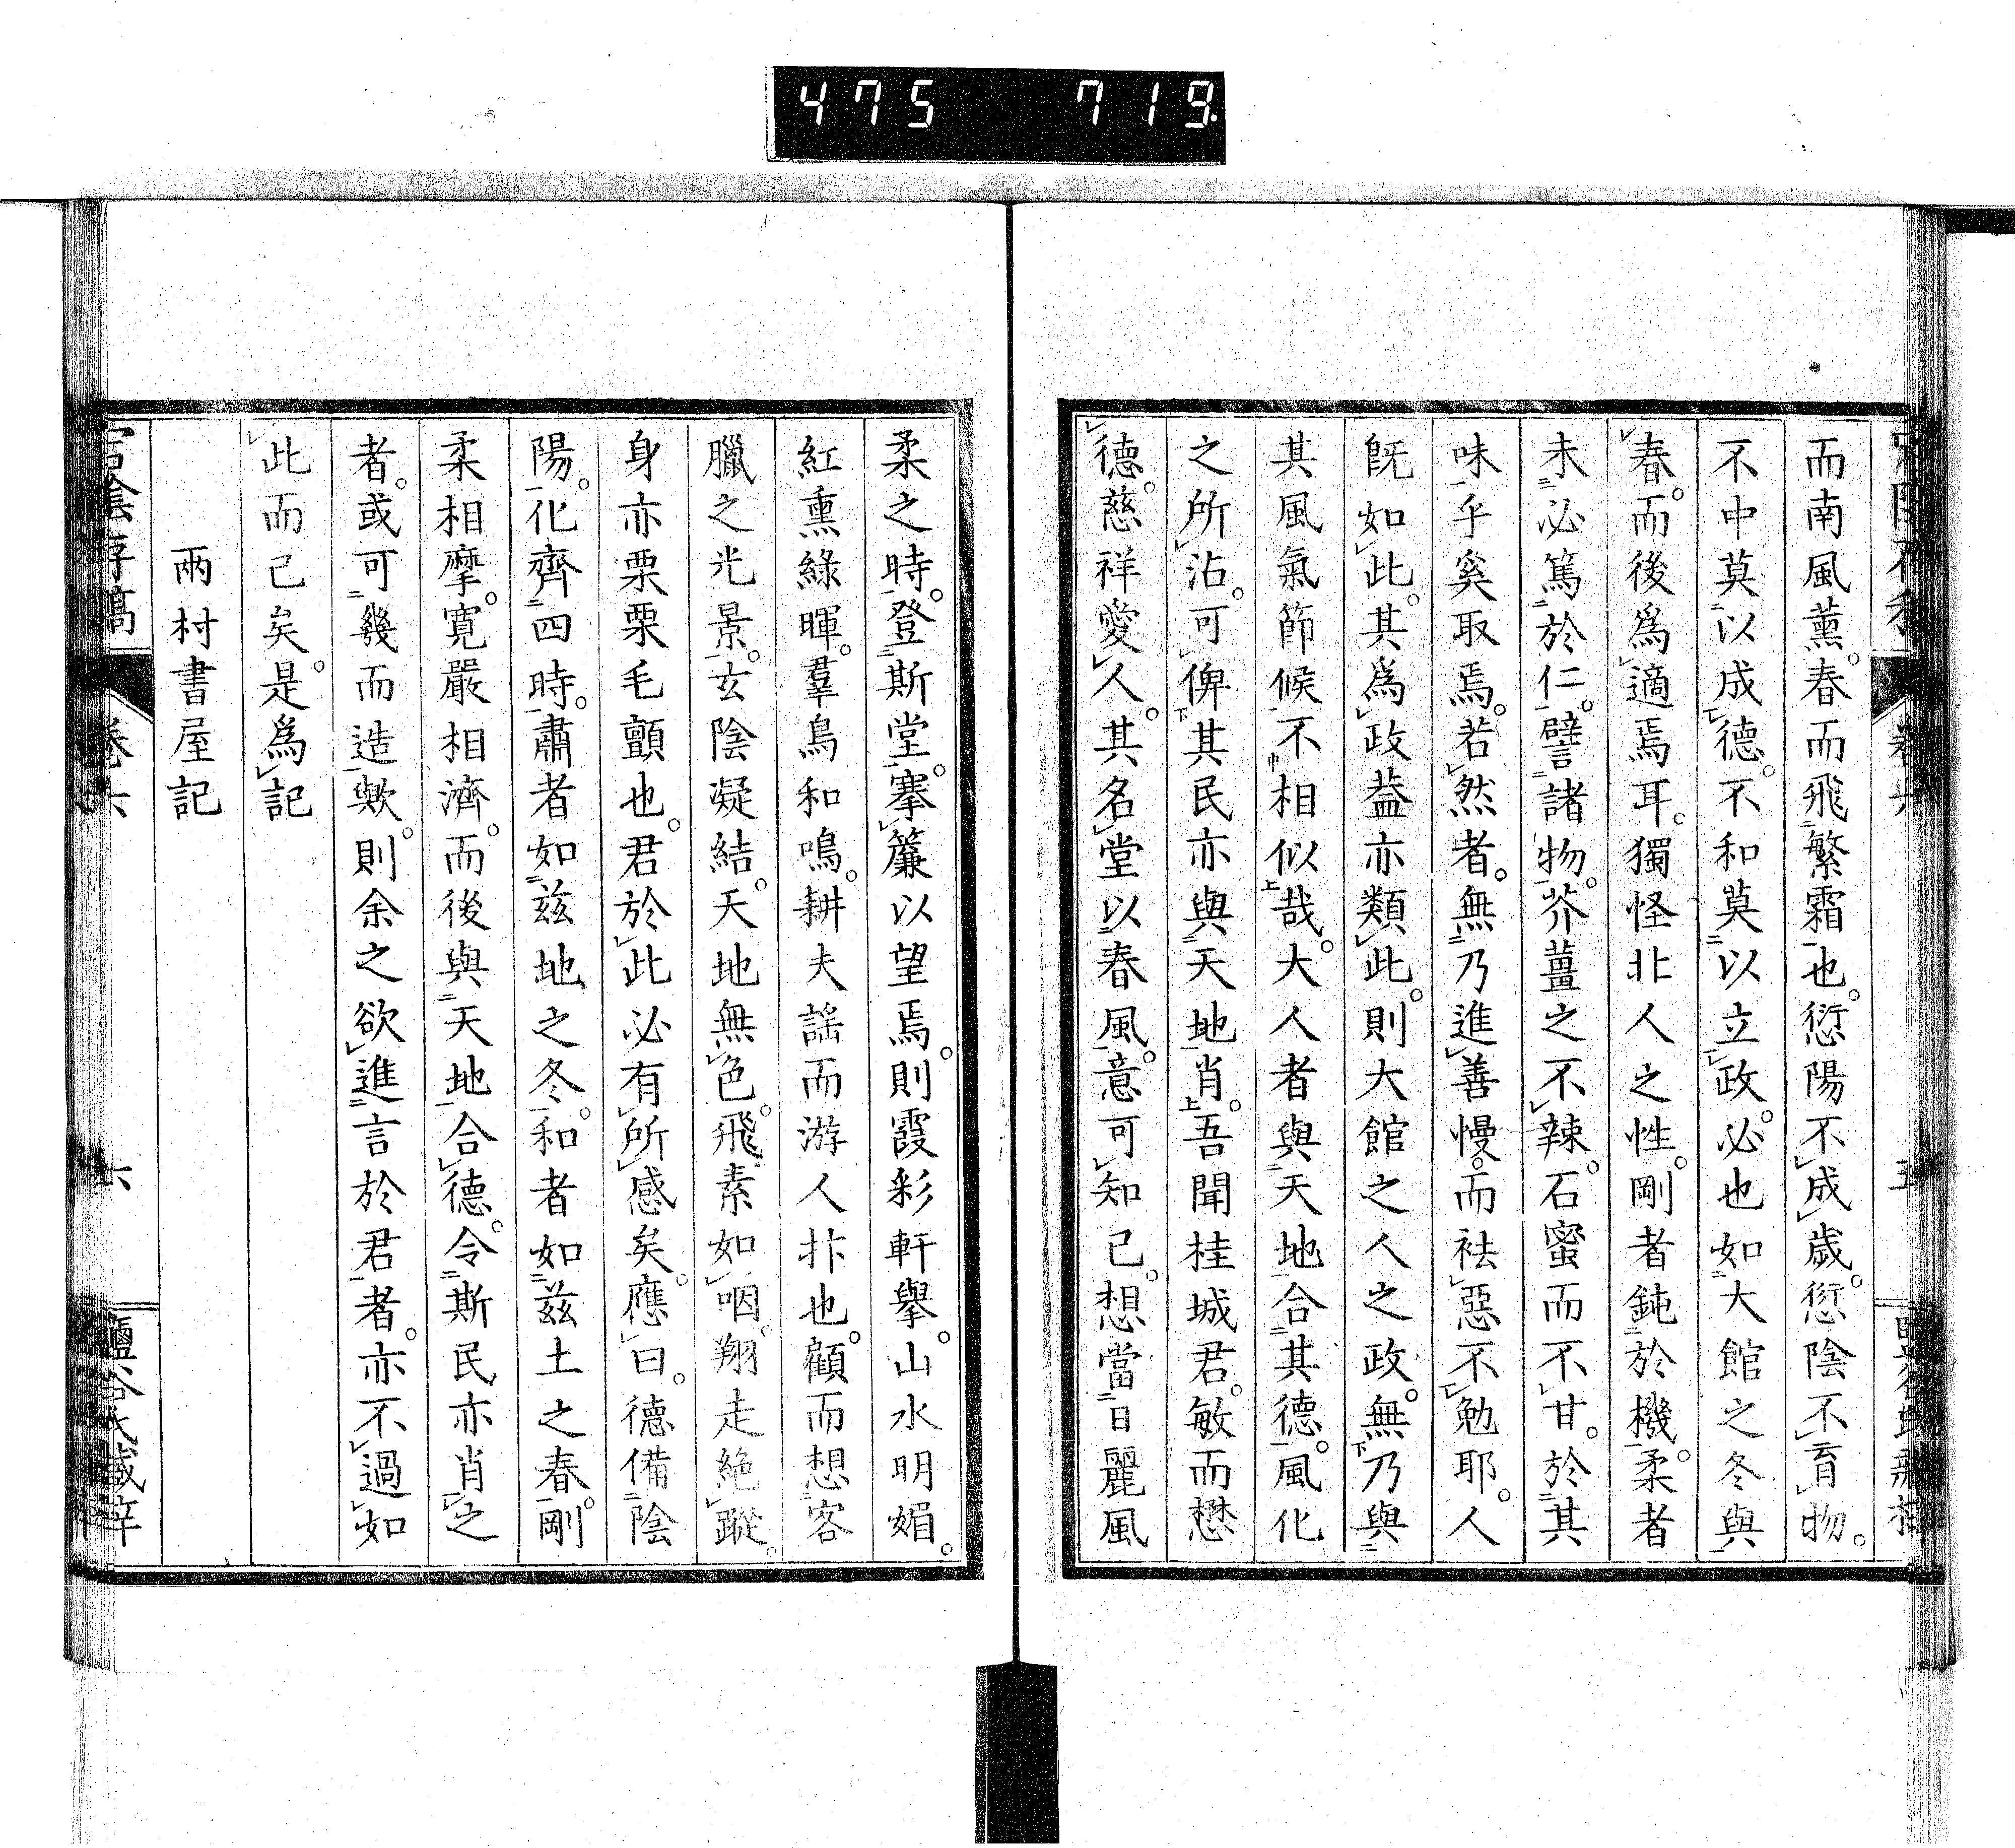 475 719
而南風薰。春而飛繁霜也。愆陽不成歲。愆陰不育物。
不中莫以成德。不和莫以立政。必也如大館之冬與
春。而後爲適焉耳。獨怪北人之性。剛者鈍於機。柔者
未必篤於仁。譬諸物。芥薑之不辣。石蜜而不甘。於其
味乎奚取焉。若然者。無乃進善慢。而袪惡不勉耶。人
旣如此。其爲政蓋亦類此。則大館之人之政。無乃與
其風氣節候不相似哉。大人者與天地合其德。風化
之所沾。可俾其民亦與天地肖。吾聞桂城君。敏而懋
德。慈祥愛人。其名堂以春風。意可知已。想當日麗風
柔之時。登斯堂。搴簾以望焉。則霞彩軒擧。山水明媚。
紅熏綠暉。羣鳥和鳴。耕夫謠而游人抃也。顧而想客
臘之光景。玄陰凝結。天地無色。飛素如咽。翔走絶蹤。
身亦栗栗毛顫也。君於此必有所感矣。應曰。德備陰
陽。化齊四時。肅者如茲地之冬。和者如茲土之春。剛
柔相摩。寛嚴相濟。而後與天地合德。令斯民亦肖之
者。或可幾而造歟。則余之欲進言於君者。亦不過如
此而已矣。是爲記
兩村書屋記
宕陰存稿 卷六 六 鹽谷氏藏梓